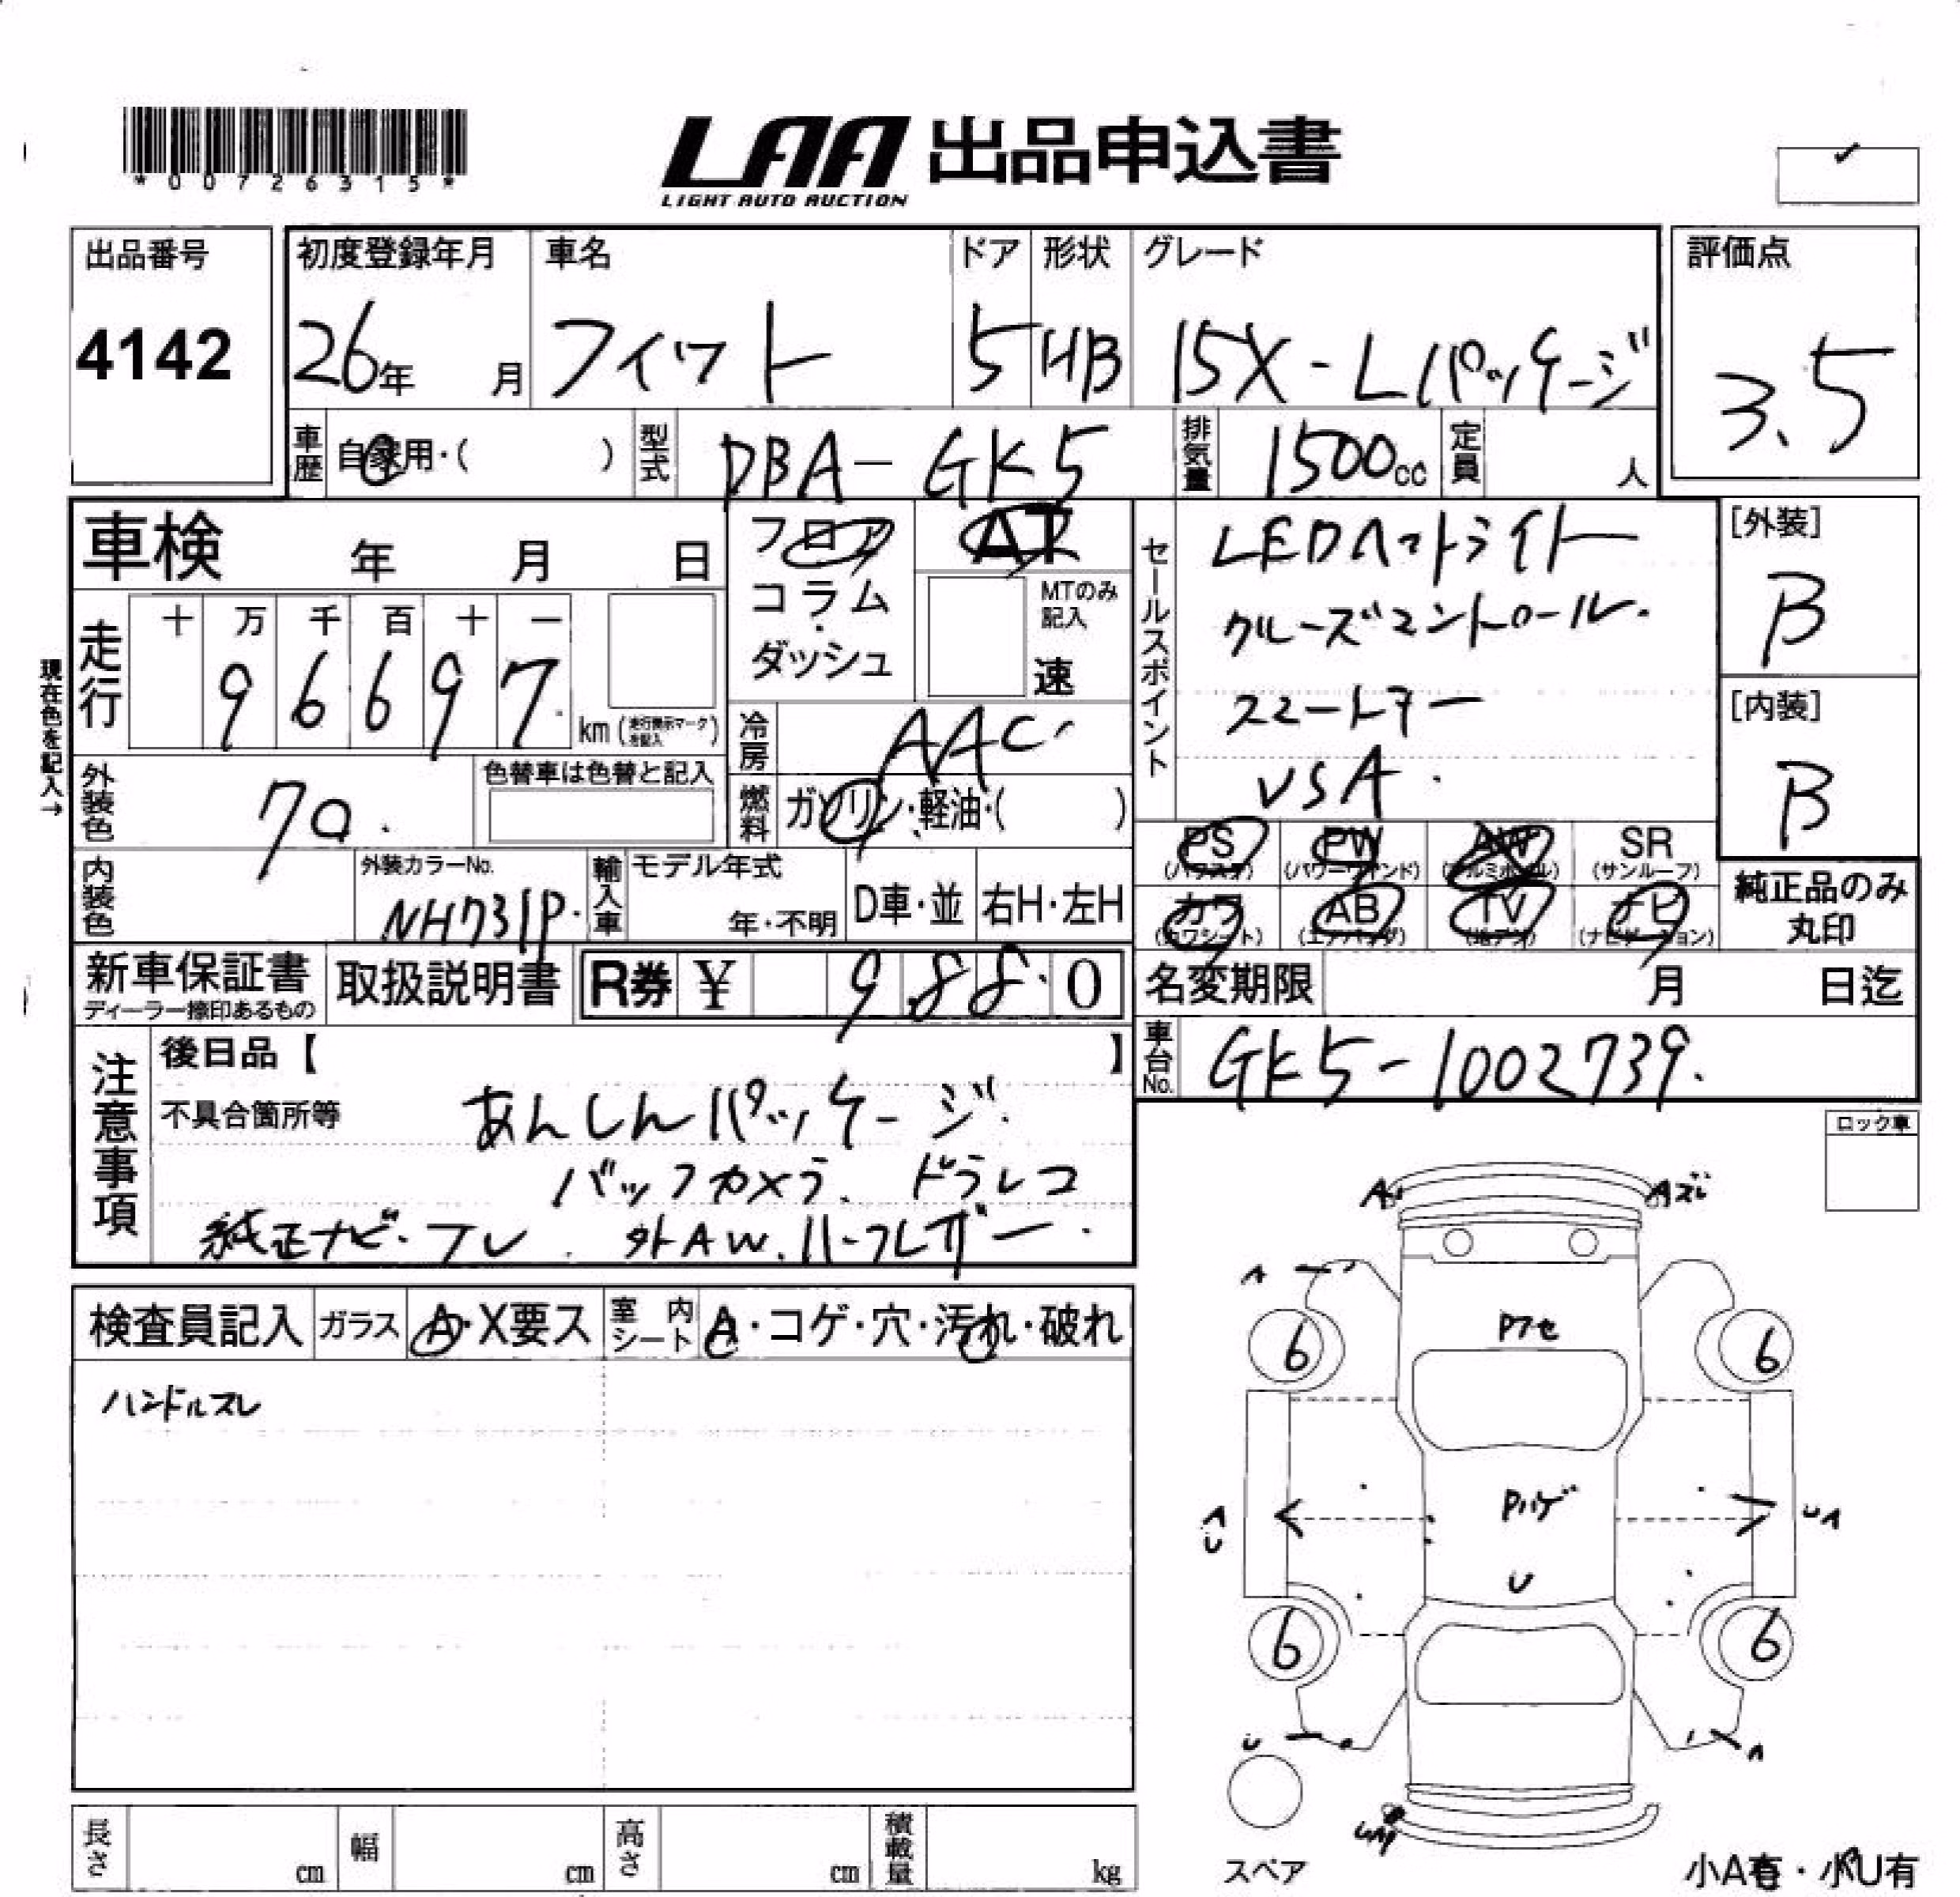 *00726315*
LAA 出品申込書
LIGHT AUTO AUCTION
出品番号
4142
初度登録年月
26年 月
車名
フィット
ドア
5
形状
HB
グレード
15X-Lパッケージ
評価点
3.5
車歴
自家用・( )
型式
DBA-GK5
排気量
1500cc
定員
人
車検 年 月 日
フロア
コラム
・
ダッシュ
AT
MTのみ
記入
速
セールスポイント
LEDヘッドライト
クルーズコントロール.
スマートキー
VSA.
[外装]
B
[内装]
B
現在色を記入→
走行
十 万 千 百 十 一
9 6 6 9 7
km (走行表示マークを記入)
冷房
AAC
外装色
色替車は色替と記入
燃料
ガソリン・軽油・( )
内装色
外装カラーNo.
NH731P.
輸入車
モデル年式
年・不明
D車・並
右H・左H
PS
(パワステ)
PW
(パワーウィンド)
AW
(アルミホイール)
SR
(サンルーフ)
カワ
(カワシート)
AB
(エアバッグ)
TV
(地デジ)
ナビ
(ナビゲーション)
純正品のみ
丸印
新車保証書
ディーラー捺印あるもの
取扱説明書
R券 ¥ 9880
名変期限 月 日迄
車台No.
GK5-1002739.
注意事項
後日品【 】
不具合箇所等
あんしんパッケージ.
バックカメラ、ドラレコ
純正ナビ・TV. 外AW. ハーフレザー.
ロック車
検査員記入
ガラス
A・X要ス
室内シート
A・コゲ・穴・汚れ・破れ
ハンドルスレ
A
Aズレ
A
Pアセ
6
6
Pハゲ
U
A
U
UA
6
6
U
A
スペア
小A有・小U有
長さ
cm
幅
cm
高さ
cm
積載量
kg